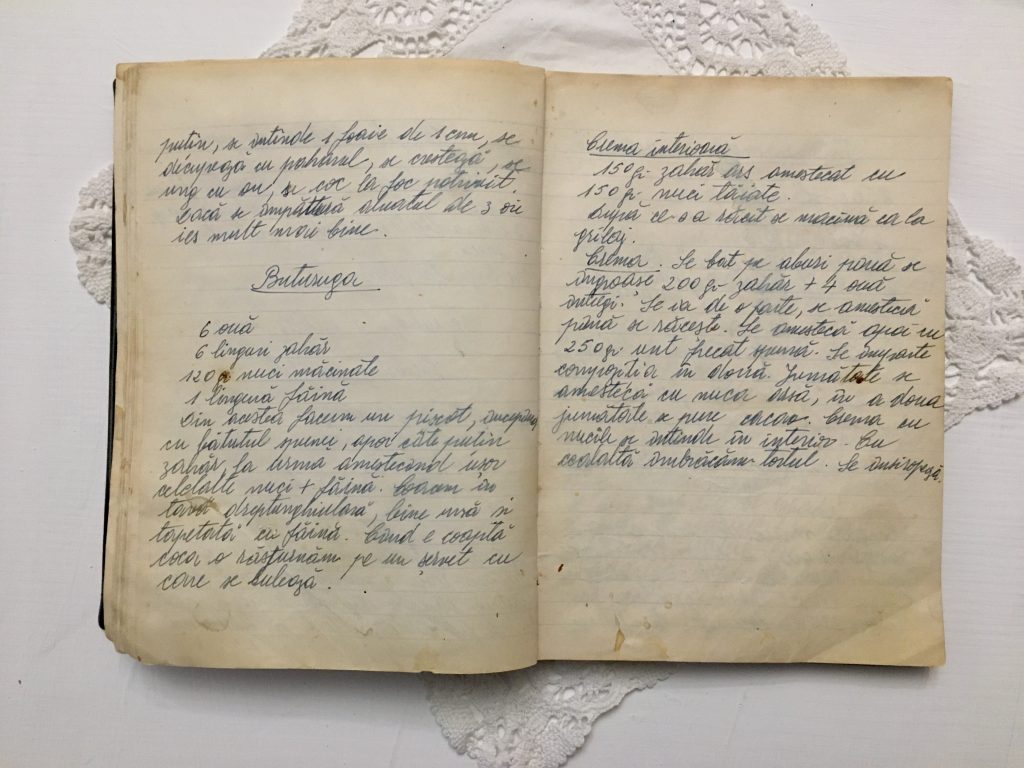 puțin, se întinde 1 foaie de 1 cm, se
decupează cu paharul, se crestează, se
ung cu ou, se coc la foc potrivit.
Dacă se împătură aluatul de 3 ori
ies mult mai bine.
Buturuga
6 ouă
6 linguri zahăr
120 gr nuci măcinate
1 lingură făină
Din acestea facem un pișcot, începând
cu bătutul spumei, apoi câte puțin
zahăr, la urmă amestecând ușor
celelalte nuci + făină. Coacem în
tavă dreptunghiulară, bine unsă și
tapetată cu făină. Când e coaptă
coca o răsturnăm pe un șervet cu
care se rulează.
Crema interioară
150 gr zahăr ars amestecat cu
150 gr nuci tăiate.
După ce s-a răcit se macină ca la
grilaj.
Crema. Se bat pe aburi până se
îngroașe 200 gr zahăr + 4 ouă
întregi. Se ia de o parte, se amestecă
până se răcește. Se amestecă apoi cu
250 gr unt frecat spumă. Se împarte
compoziția în două. Jumătate se
amestecă cu nuca arsă, în a doua
jumătate se pune cacao. Crema cu
nucile se întinde în interior. Cu
cealaltă îmbrăcăm tortul. Se însiropează.